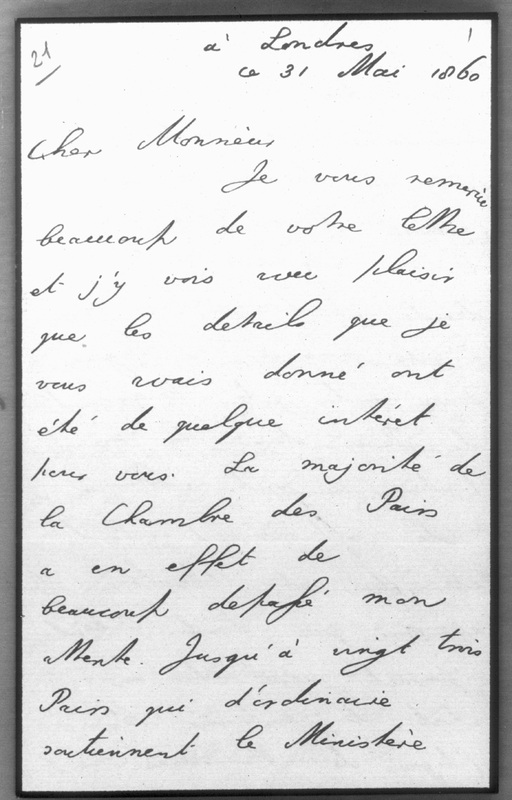 21
à Londres
ce 31 Mai 1860
Cher Monsieur
Je vous remercie
beaucoup de votre lettre
et j'y vois avec plaisir
que les details que je
vous avais donné ont
été de quelque intéret
pour vous. La majorité de
la Chambre des Pairs
a en effet de
beaucoup depassé mon
attente. Jusqu'à vingt trois
Pairs qui d'ordinaire
soutiennent le Ministère